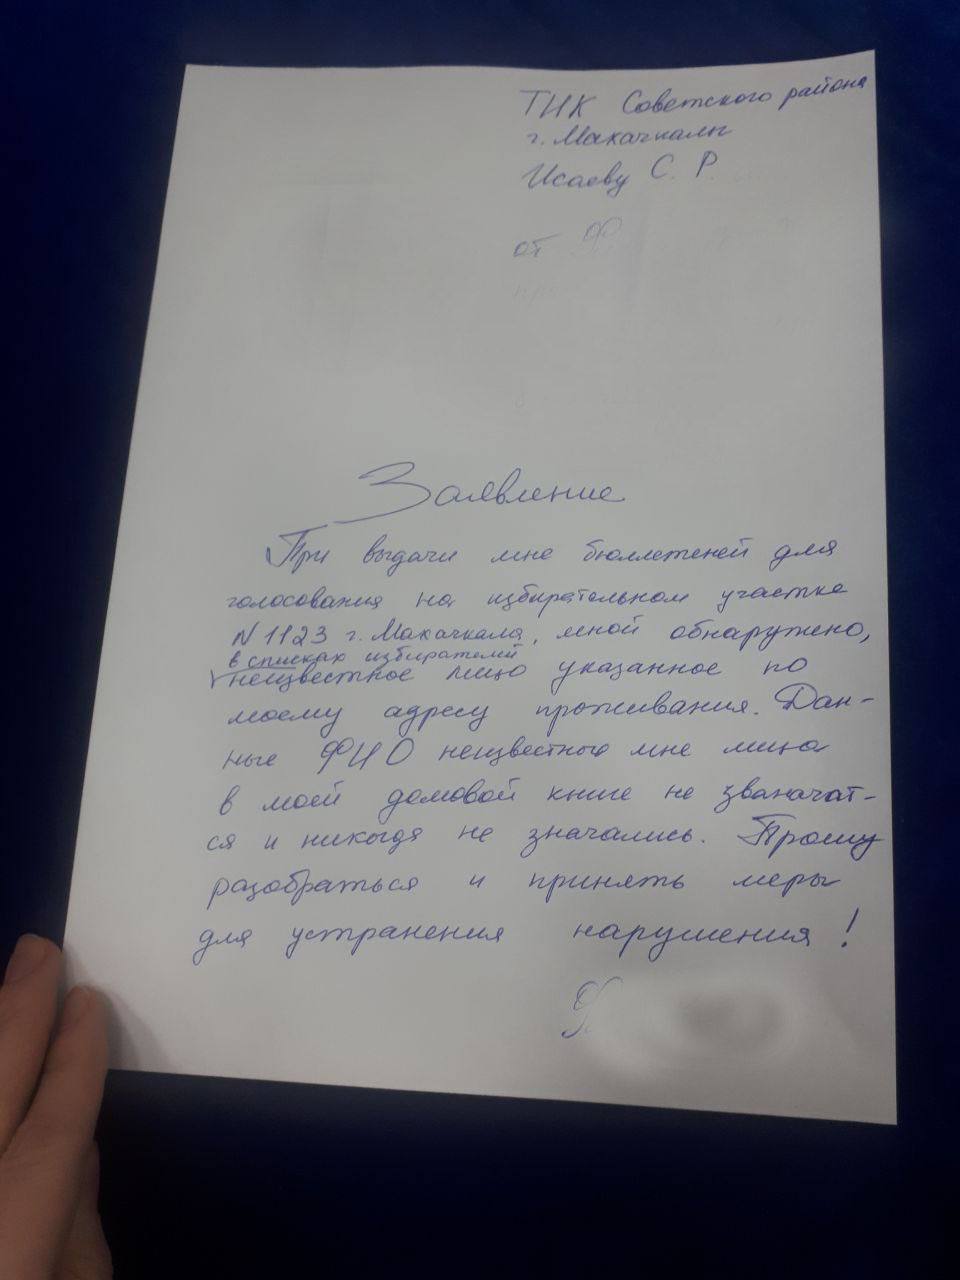 ТИК Советского района
г. Махачкалы
Исаеву С. Р.
от
Заявление
При выдачи мне бюллетеней для
голосования на избирательном участке
N 1123 г. Махачкала, мной обнаружено,
в списках избирателей
неизвестное лицо указанное по
моему адресу проживания. Дан-
ные ФИО неизвестного мне лица
в моей домовой книге не званачат-
ся и никогда не значались. Прошу
разобраться и принять меры
для устранения нарушения!